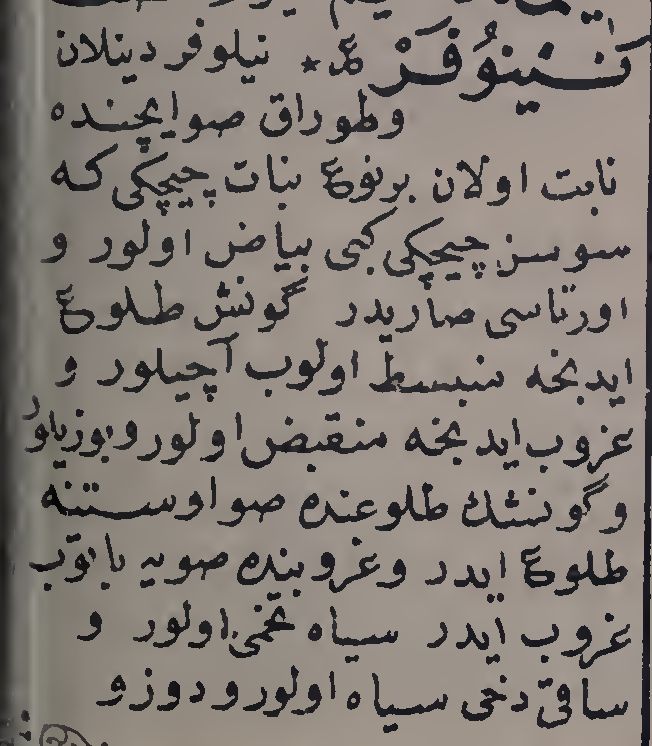 نَيْنُوفَرْ ع * نيلوفر دينلان
وطوراق صو ايچنده
نابت اولان برنوع نبات چيچكى كه
سوسن چيچكى كبى بياض اولور و
اورتاسى صاريدر گونش طلوع
ايدنجه منبسط اولوب آچيلور و
غروب ايدنجه منقبض اولور و بوزيلور
و گونشك طلوعنده صو اوستنه
طلوع ايدر و غروبنده صويه باتوب
غروب ايدر سياه تخمى اولور و
ساقى دخى سياه اولور و دوز و